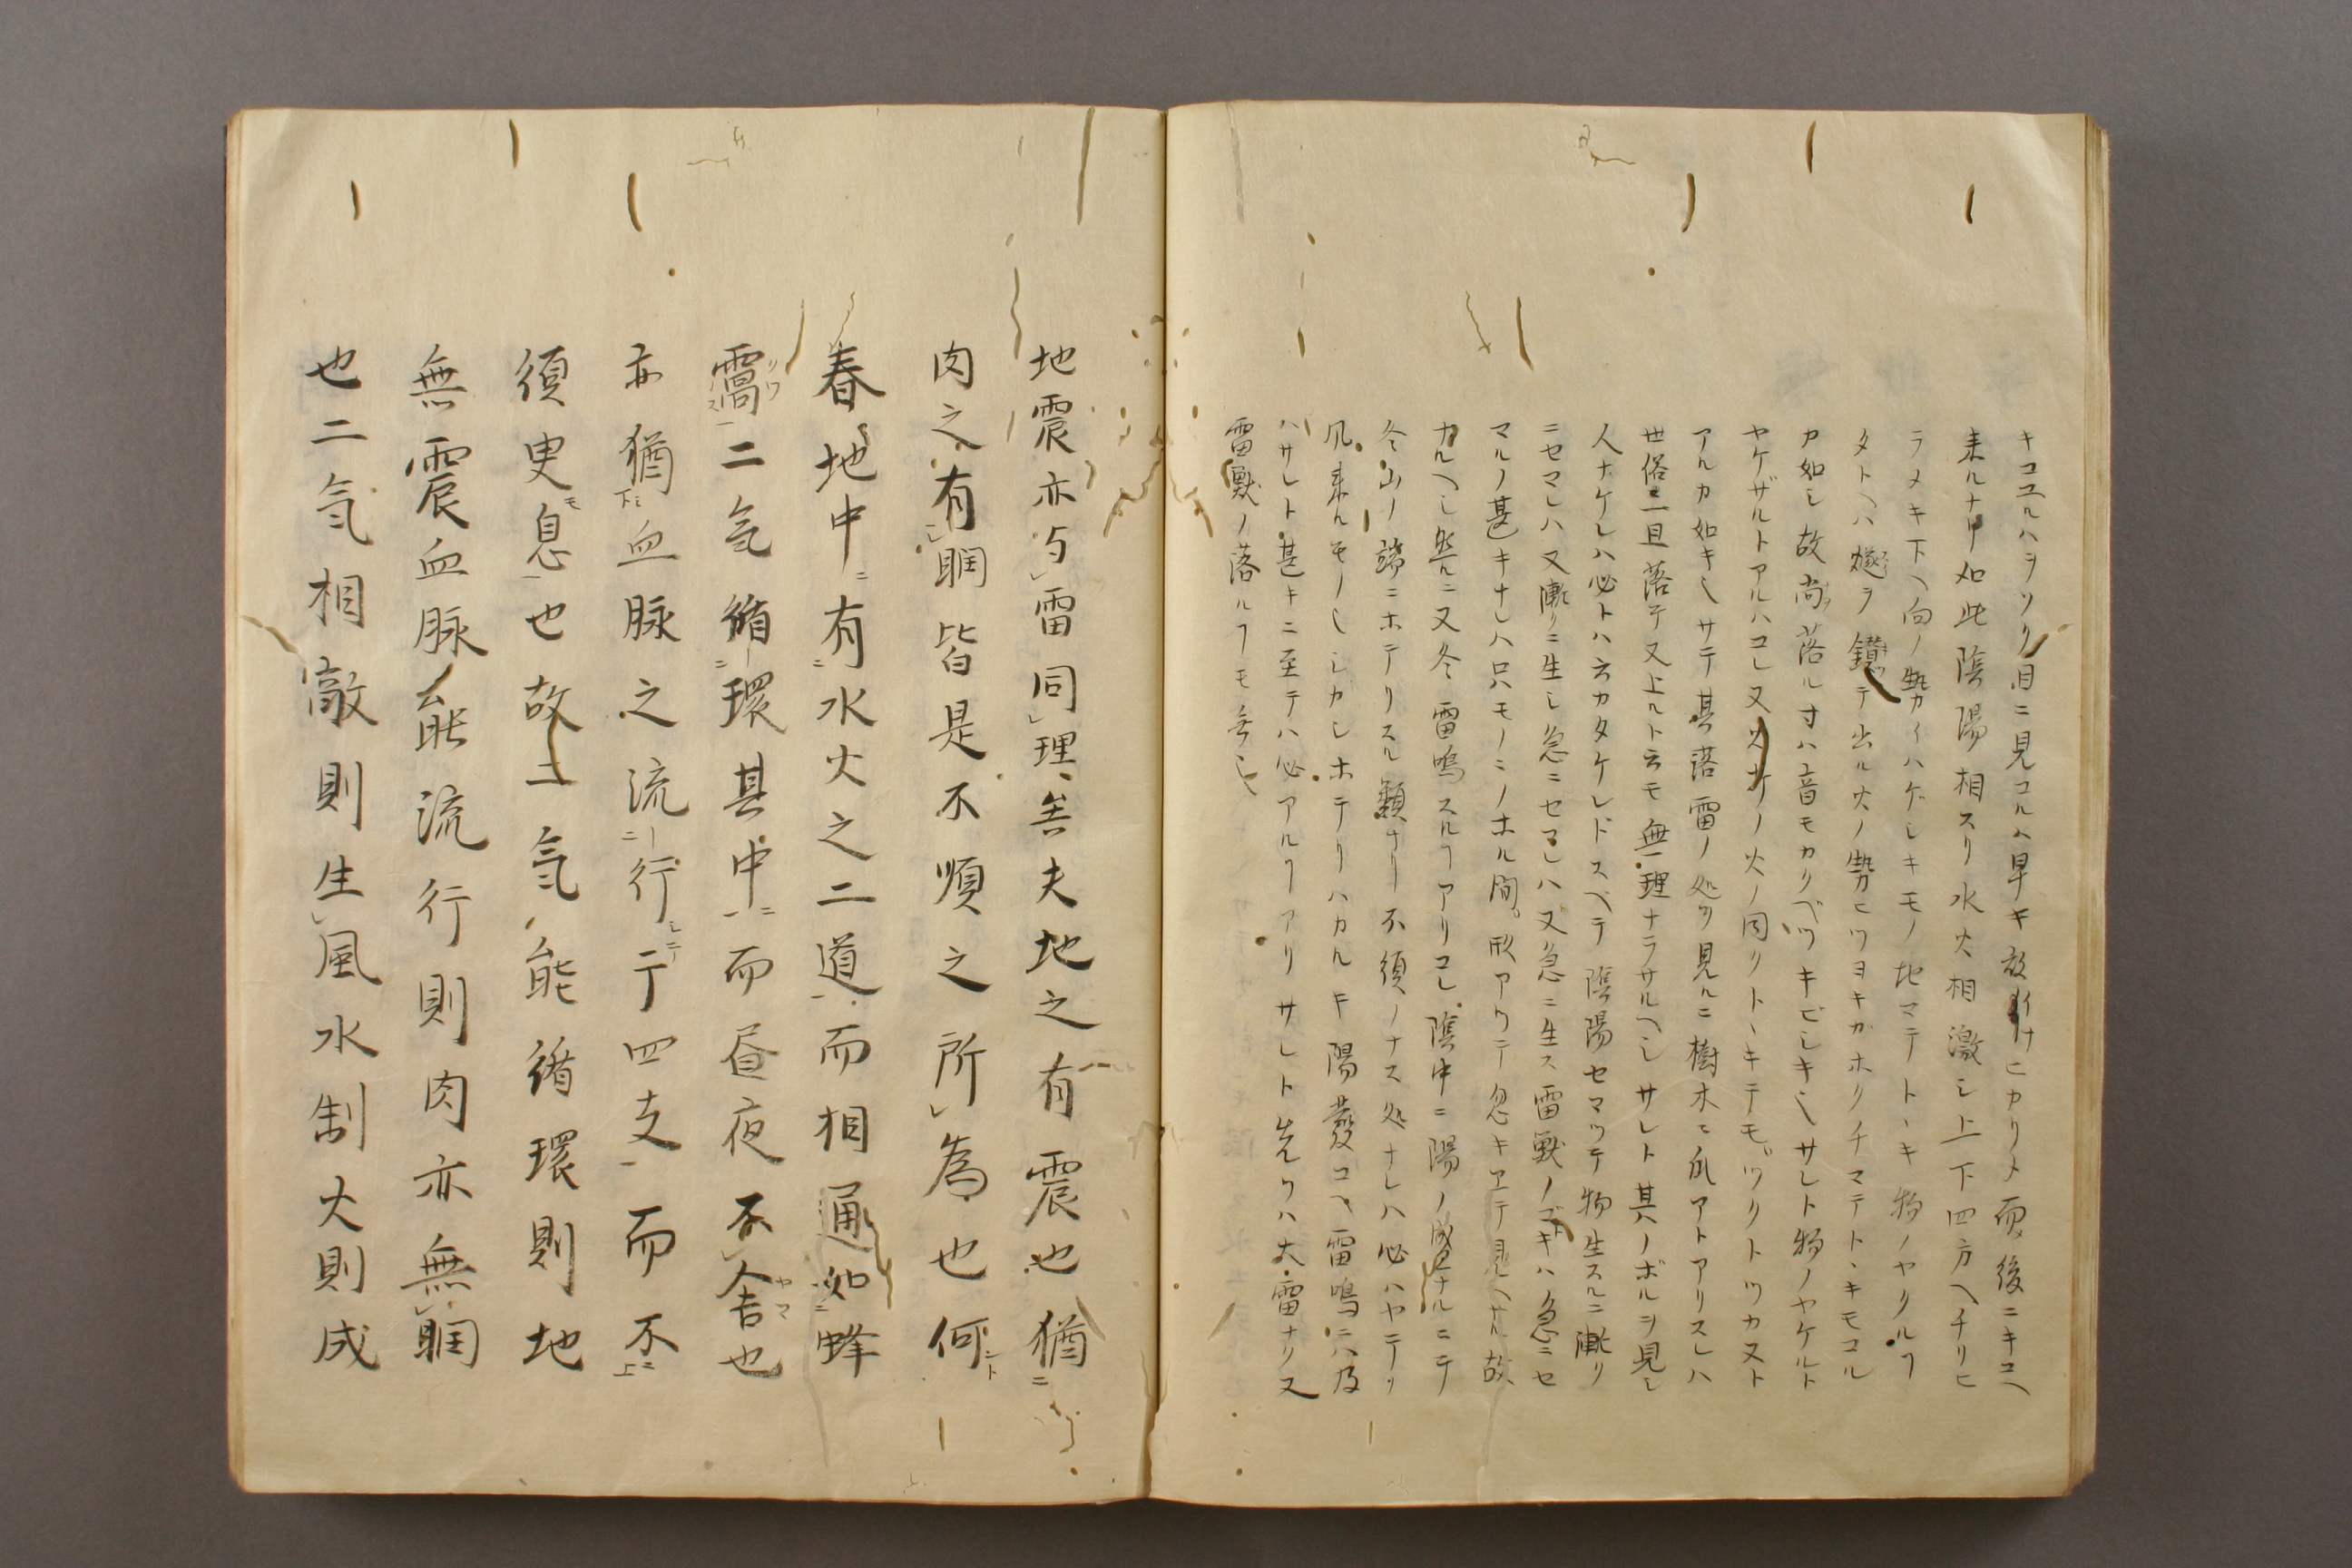 キコユルハヲソク目ニ見コルハ早キ故ナリ而後ニキコヘ
来ルナリ如此陰陽相スリ水火相激シ上下四方ヘチリヒ
ラメキ下ヘ向ノ勢イハゲシキモノ地マテトヽキ物ノヤクルヿ
タトヘハ燧ヲ鑚テ出ル火ノ勢ヒツヨキガホクチマテトヽキモコル
カ如シ故尚落ル寸ハ音モカクベツキビシキ也サレト物ノヤケルト
ヤケザルトアルハコレ又火ウチノ火ノ同クトヽキテモツクトツカヌト
アルカ如キ也サテ其落雷ノ処ヲ見ルニ樹木ニ爪アトアリスレハ
世俗一旦落テ又上ルト云モ無理ナラサルヘシサレト其ノボルヲ見シ
人ナケレハ必トハ云カタケレドスベテ陰陽セマツテ物生スルニ漸ク
ニセマレハ又漸クニ生シ急ニセマレハ又急ニ生ス雷獣ノゴキハ急ニセ
マルノ甚キナレハ只モノニノホル間形アツテ忽キヱテ見ヘサル故
カルヘシ然ルニ又冬雷鳴スルヿアリコレ陰中ニ陽ノ成ナルニテ
冬山ノ端ニホテリスル類ナリ不須ノナス処ナレハ必ハヤテクリ
風来ルモノ也シカレホテリハカルキ陽発コヘ雷鳴ニハ及
ハサレト甚キニ至テハ必アルヿアリサレト先ツハ大雷ナク又
雷獣ノ落ルヿモ無シ
地震亦与雷同理矣夫地之有震也猶
肉之有瞤皆是不順之所為也何
春地中有水火之二道而相通如蜂
窩二気循環其中而昼夜不舎也
亦猶血脉之流行于四支而不
須臾息也故二気能循環則地
無震血脉能流行則肉亦無瞤
也二気相敵則生風水制火則成